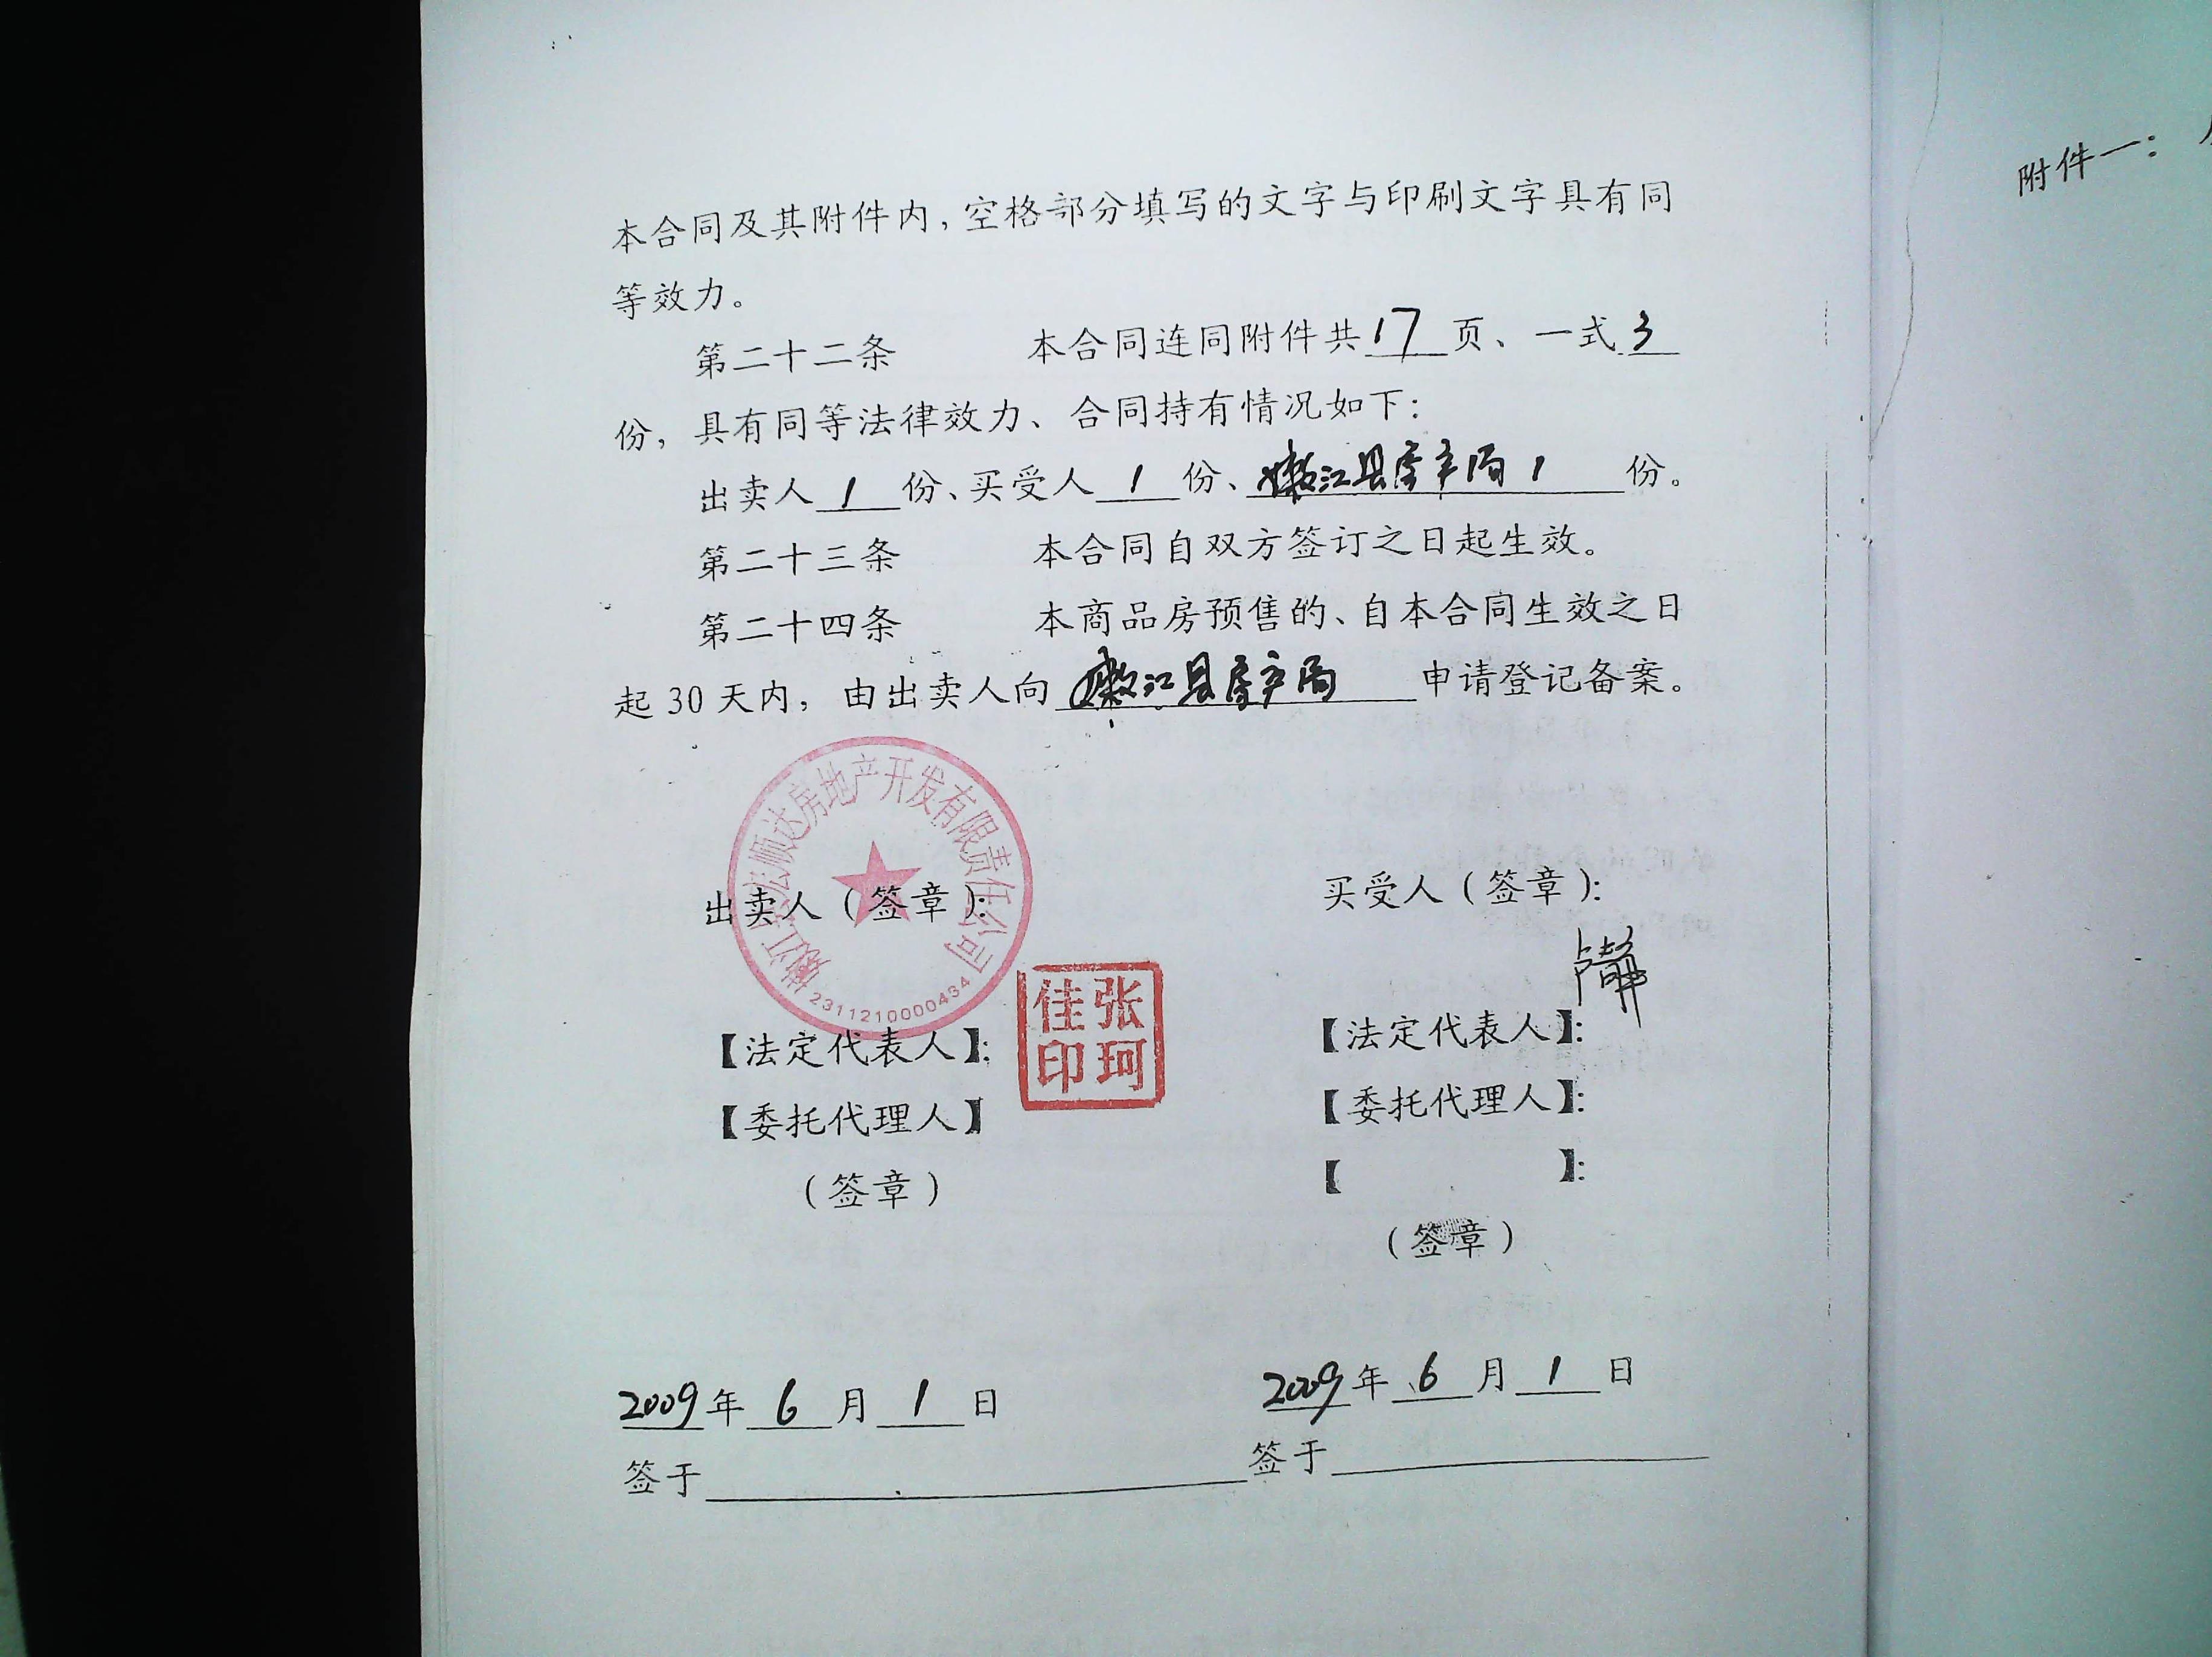 本合同及其附件内，空格部分填写的文字与印刷文字具有同
等效力。
第二十二条 本合同连同附件共 17 页、一式 3
份，具有同等法律效力、合同持有情况如下：
出卖人 1 份、买受人 1 份、嫩江县房产局 1 份。
第二十三条 本合同自双方签订之日起生效。
第二十四条 本商品房预售的、自本合同生效之日
起 30 天内，由出卖人向 嫩江县房产局 申请登记备案。
嫩江县宏顺达房地产开发有限责任公司
2311210000434
出卖人（签章）：
买受人（签章）：
卢静
张珂
佳印
【法定代表人】：
【法定代表人】：
【委托代理人】
【委托代理人】：
【 】：
（签章）
（签章）
2009 年 6 月 1 日
2009 年 6 月 1 日
签于
签于
附件一：